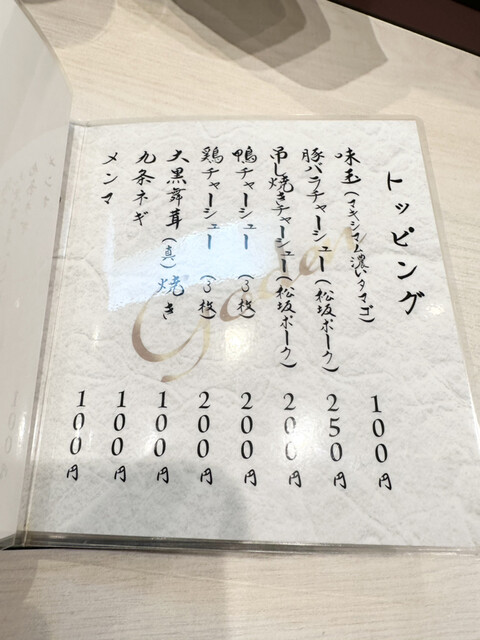 トッピング
味玉(マキシマム濃いタマゴ) 100円
豚バラチャーシュー(松坂ポーク) 250円
吊し焼きチャーシュー(松坂ポーク) 200円
鴨チャーシュー(3枚) 200円
鶏チャーシュー(3枚) 200円
大黒舞茸(真)焼き 100円
九条ネギ 100円
メンマ 100円